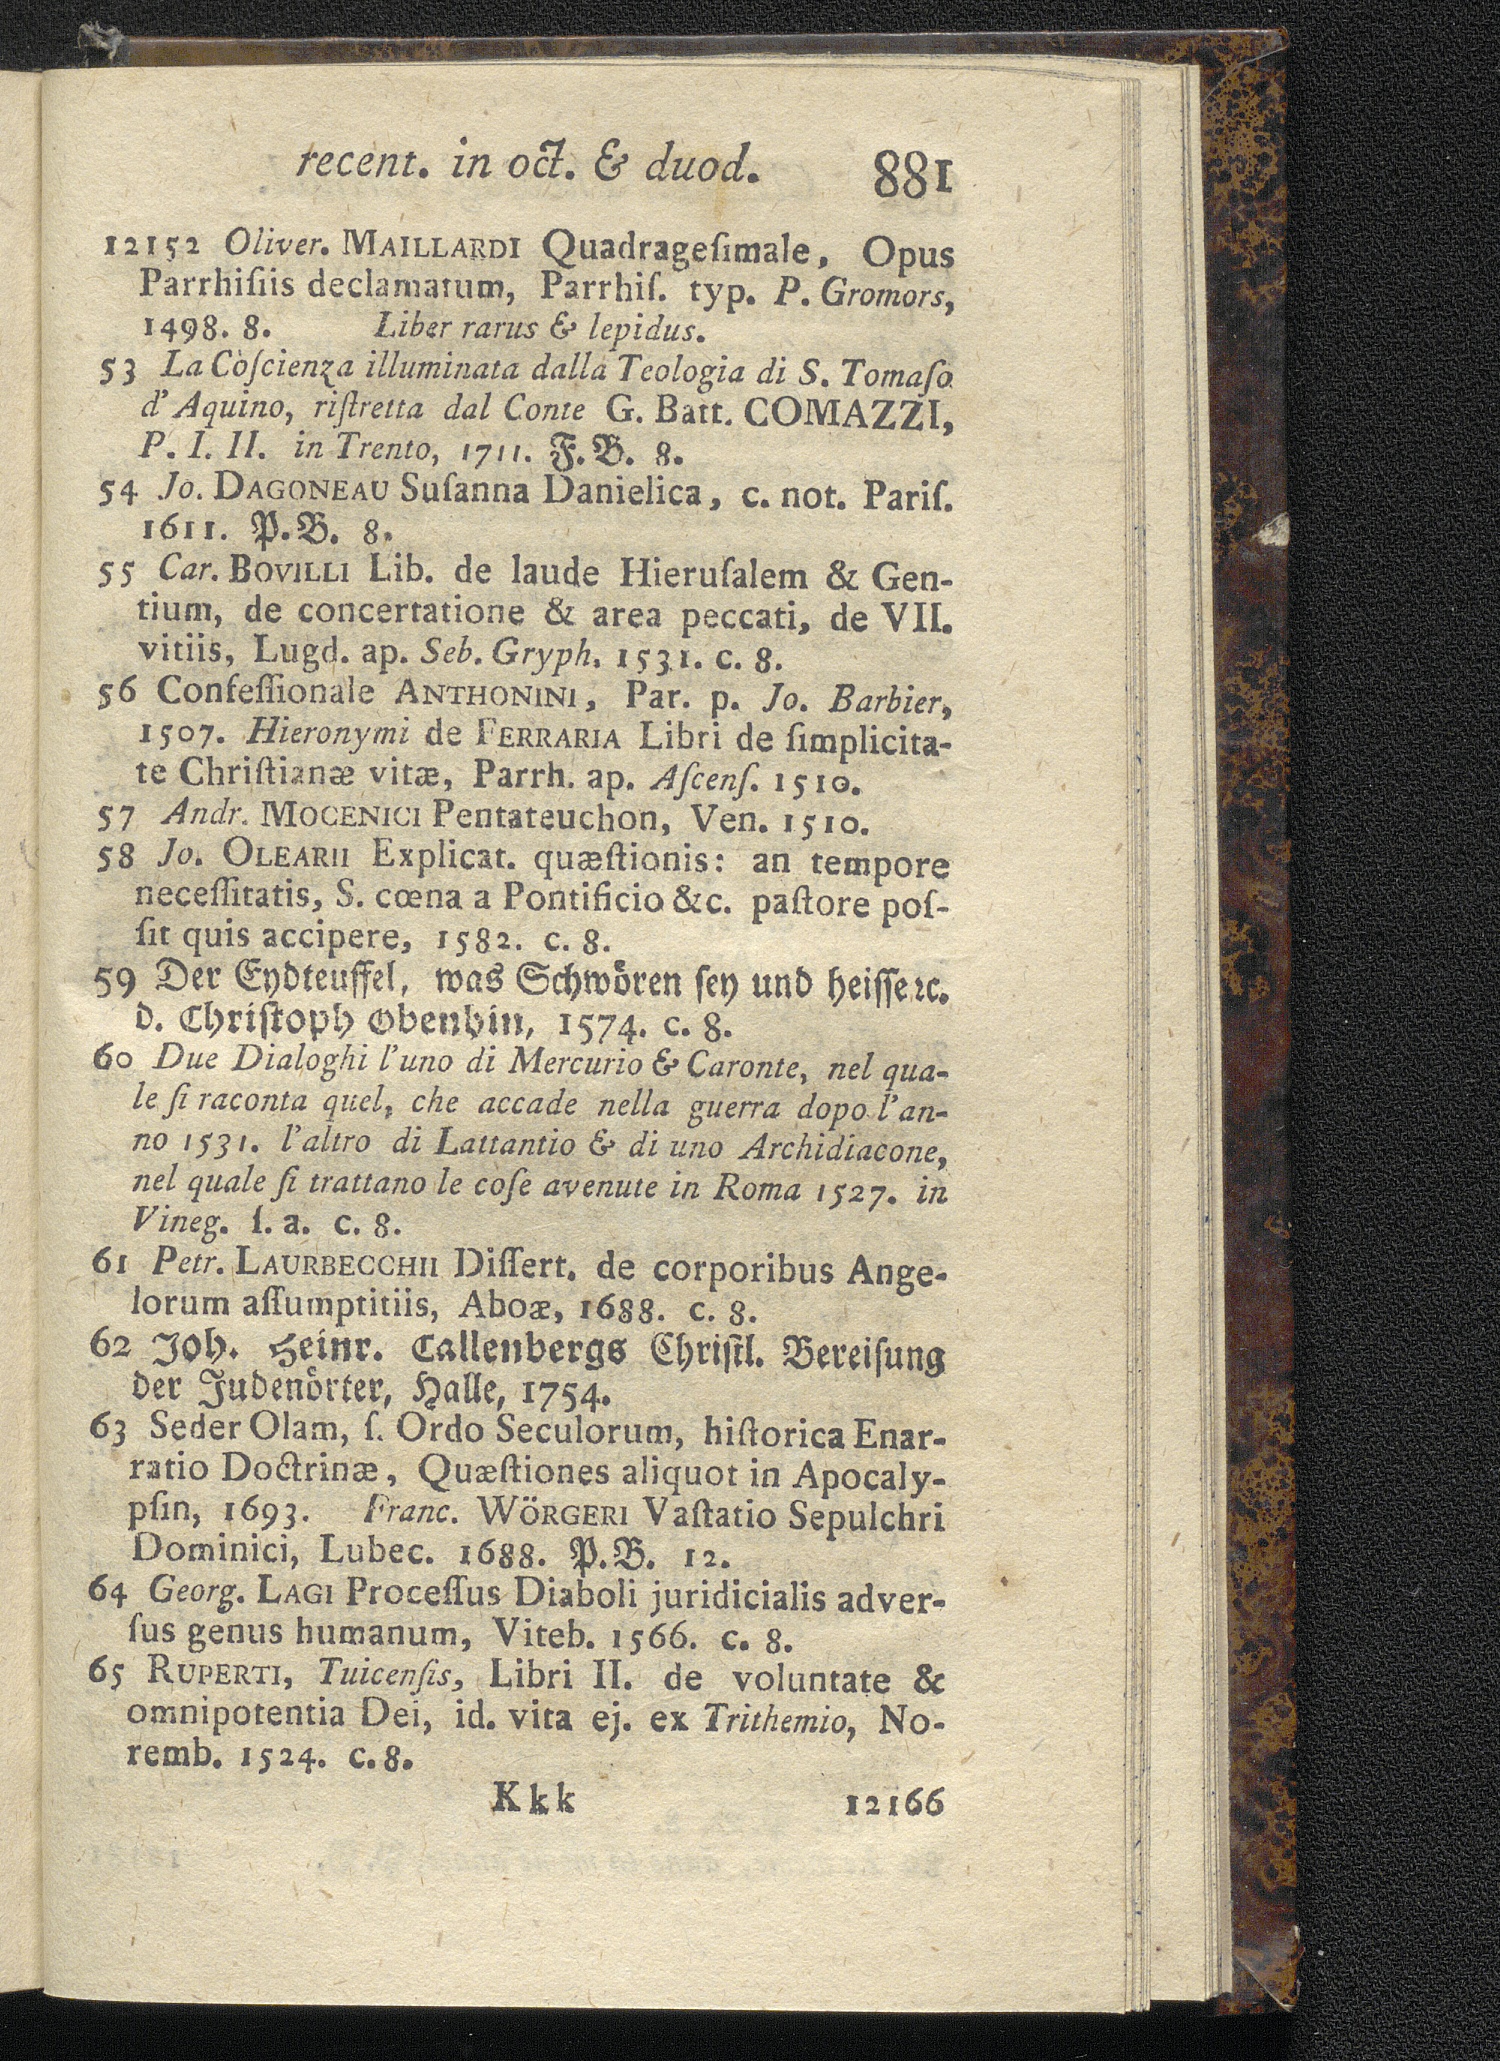 recent. in oct. & duod. 881
12152 Oliver. MAILLARDI Quadrageſimale, Opus
Parrhiſiis declamatum, Parrhiſ. typ. P. Gromors,
1498. 8. Liber rarus & lepidus.
53 La Còſcienza illuminata dalla Teologia di S. Tomaſo
d' Aquino, riſtretta dal Conte G. Batt. COMAZZI,
P. I. II. in Trento, 1711. F.B. 8.
54 Jo. DAGONEAU Suſanna Danielica, c. not. Pariſ.
1611. P.B. 8.
55 Car. BOVILLI Lib. de laude Hieruſalem & Gen-
tium, de concertatione & area peccati, de VII.
vitiis, Lugd. ap. Seb. Gryph. 1531. c. 8.
56 Confeſſionale ANTHONINI, Par. p. Jo. Barbier,
1507. Hieronymi de FERRARIA Libri de ſimplicita-
te Chriſtianæ vitæ, Parrh. ap. Aſcenſ. 1510.
57 Andr. MOCENICI Pentateuchon, Ven. 1510.
58 Jo. OLEARII Explicat. quæſtionis: an tempore
neceſſitatis, S. cœna a Pontificio &c. paſtore poſ-
ſit quis accipere, 1582. c. 8.
59 Der Eydteuffel, was Schwören ſey und heiſſe ꝛc.
d. Chriſtoph Obenhin, 1574. c. 8.
60 Due Dialoghi l'uno di Mercurio & Caronte, nel qua-
le ſi raconta quel, che accade nella guerra dopo l'an-
no 1531. l'altro di Lattantio & di uno Archidiacone,
nel quale ſi trattano le coſe avenute in Roma 1527. in
Vineg. ſ. a. c. 8.
61 Petr. LAURBECCHII Diſſert. de corporibus Ange-
lorum aſſumptitiis, Aboæ, 1688. c. 8.
62 Joh. Heinr. Callenbergs Chriſtl. Bereiſung
der Judenörter, Halle, 1754.
63 Seder Olam, ſ. Ordo Seculorum, hiſtorica Enar-
ratio Doctrinæ, Quæſtiones aliquot in Apocaly-
pſin, 1693. Franc. WÖRGERI Vaſtatio Sepulchri
Dominici, Lubec. 1688. P.B. 12.
64 Georg. LAGI Proceſſus Diaboli juridicialis adver-
ſus genus humanum, Viteb. 1566. c. 8.
65 RUPERTI, Tuicenſis, Libri II. de voluntate &
omnipotentia Dei, id. vita ej. ex Trithemio, No-
remb. 1524. c. 8.
Kkk 12166